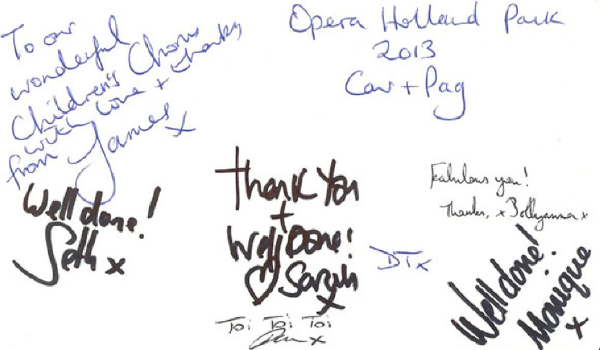 To our
wonderful
Children's Chorus
with love + thanks
from James x
Opera Holland Park
2013
Cav + Pag
Well done!
Seth x
Thank You
+
Well Done!
♡ Sarah
x
Toi Toi Toi
x
DTx
Fabulous you!
Thanks, x
Well done!
Monique
x